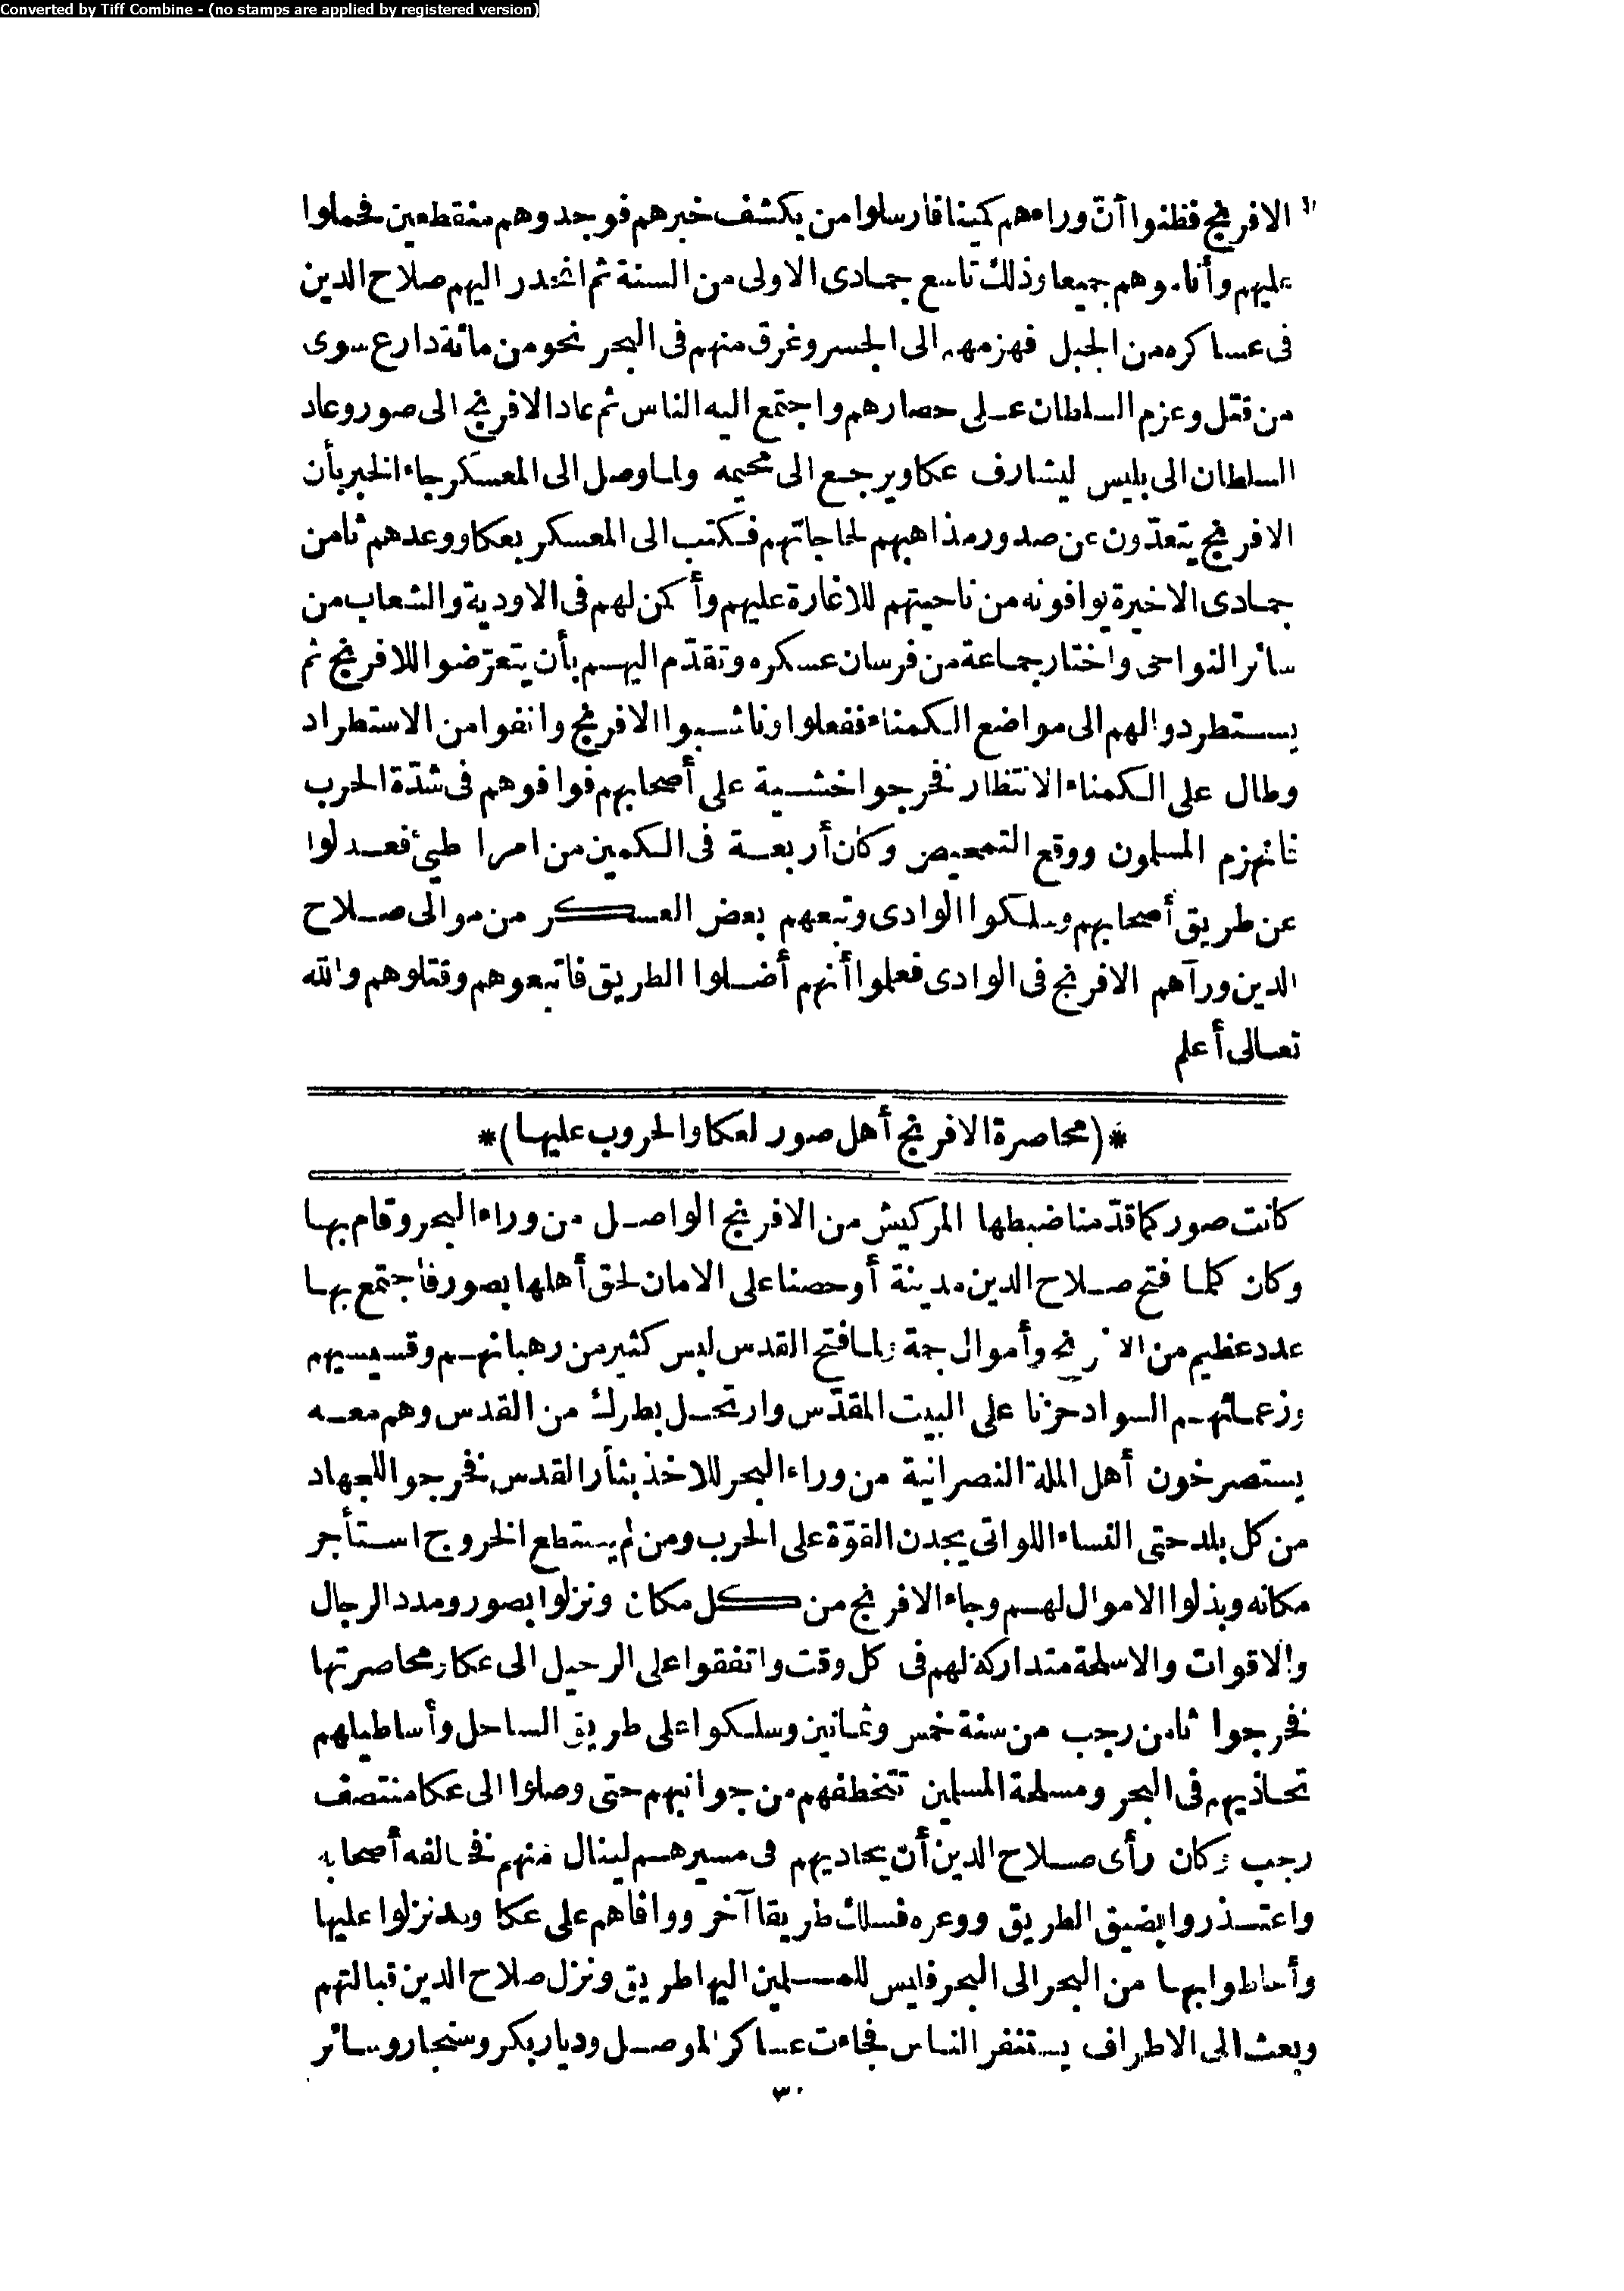 Converted by Tiff Combine - (no stamps are applied by registered version)
الافرنج فظنوا أنّ وراءهم كمينا فارسلوا من يكشف خبرهم فوجدوهم منقطعين فحملوا
عليهم وأناموهم جميعا وذلك تاسع جمادى الاولى من السنة ثم انحدر اليهم صلاح الدين
فى عساكره من الجبل فهزمهم الى الجسر وغرق منهم فى البحر نحو من مائة دارع سوى
من قتل وعزم السلطان على حصارهم واجتمع اليه الناس ثم عاد الافرنج الى صور وعاد
السلطان الى بليس ليشارف عكا ويرجع الى مخيمه ولما وصل الى المعسكر جاء الخبر بأن
الافرنج يتعدّون عن صدور مذاهبهم لحاجاتهم فكتب الى المعسكر بعكا ووعدهم ثامن
جمادى الاخيرة يوافونه من ناحيتهم للاغارة عليهم وأكمن لهم فى الاودية والشعاب من
سائر النواحى واختار جماعة من فرسان عسكره وتقدّم اليهم بأن يتعرّضوا للافرنج ثم
يستطردوا لهم الى مواضع الكمناء ففعلوا وناشبوا الافرنج وانفوا من الاستطراد
وطال على الكمناء الانتظار فخرجوا خشية على أصحابهم فوافوهم فى شدّة الحرب
فانهزم المسلمون ووقع التمحيص وكان أربعة فى الكمين من امرا طيئ فعدلوا
عن طريق أصحابهم وسلكوا الوادى وتبعهم بعض العسكر من موالى صلاح
الدين ورآهم الافرنج فى الوادى فعلموا أنهم أضلوا الطريق فاتبعوهم وقتلوهم والله
تعالى أعلم
*(محاصرة الافرنج أهل صور لعكا والحروب عليها)*
كانت صور كما قدّمنا ضبطها المركيش من الافرنج الواصل من وراء البحر وقام بها
وكان كلما فتح صلاح الدين مدينة أو حصنا على الامان لحق أهلها بصور فاجتمع بها
عدد عظيم من الافرنج وأموال جمة ولما فتح القدس لبس كثير من رهبانهم وقسيسيهم
وزعمائهم السواد حزنا على البيت المقدّس وارتحل بطرك من القدس وهم معه
يستصرخون أهل الملة النصرانية من وراء البحر للاخذ بثأر القدس فخرجوا للجهاد
من كل بلد حتى النساء اللواتى يجدن القوّة على الحرب ومن لم يستطع الخروج استأجر
مكانه وبذلوا الاموال لهم وجاء الافرنج من كل مكان ونزلوا بصور ومدد الرجال
والاقوات والاسلحة متداركة لهم فى كل وقت واتفقوا على الرحيل الى عكا ومحاصرتها
فخرجوا ثامن رجب من سنة خمس وثمانين وسلكوا على طريق الساحل وأساطيلهم
تحاذيهم فى البحر ومسلحة المسلمين تتخطفهم من جوانبهم حتى وصلوا الى عكا منتصف
رجب وكان رأى صلاح الدين أن يحاديهم فى مسيرهم لينال منهم فخالفه أصحابه
واعتذروا بضيق الطريق ووعره فسلك طريقا آخر ووافاهم على عكا وقد نزلوا عليها
وأحاطوا بها من البحر الى البحر فليس للمسلمين اليها طريق ونزل صلاح الدين قبالتهم
وبعث الى الاطراف يستنفر الناس فجاءت عساكر الموصل وديار بكر وسنجار وسائر
٣٠